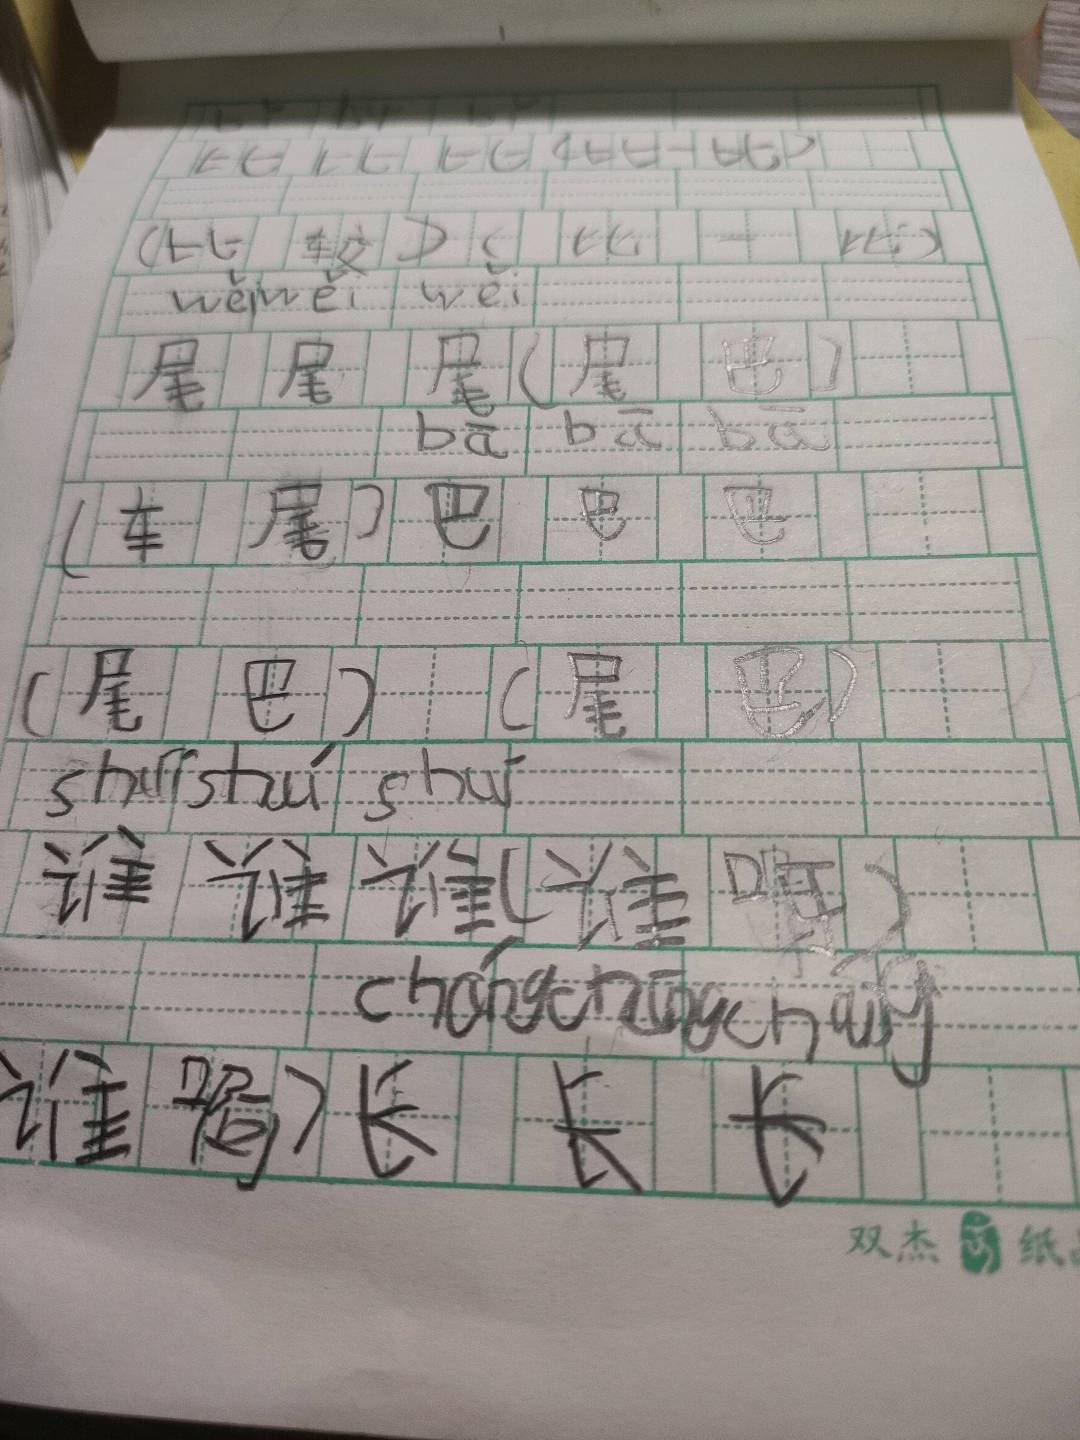 bǐ bǐ bǐ
比 比 比 (比比一比)
(比 较) (比 一 比)
wěi wěi wěi
尾 尾 尾 (尾 巴)
bā bā bā
(车 尾) 巴 巴 巴
(尾 巴) (尾 巴)
shuí shuí shuí
谁 谁 谁 (谁 呀)
cháng cháng cháng
谁 长 长 长
双杰 纸